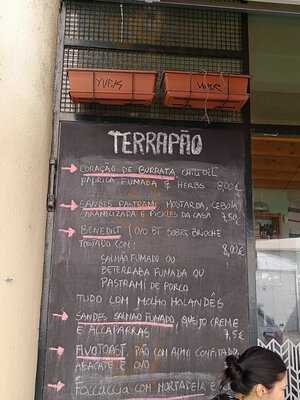 TERRAPÃO
CORAÇÃO DE BURRATA, CHILI OIL
PAPRICA FUMADA & HERBS 8,00€
SANDES PASTRAMI, MOSTARDA, CEBOLA
CARAMELIZADA E PICKLES DA CASA 7,50
BENEDICT | OVO BT SOBRE BRIOCHE
TOSTADO COM: 8,00€
SALMÃO FUMADO OU
BETERRABA FUMADA OU
PASTRAMI DE PORCO
TUDO COM MOLHO HOLANDÊS
SANDES SALMÃO FUMADO, QUEIJO CREME
E ALCAPARRAS 7,5€
AVOTOAST, PÃO COM ALHO CONFITADO,
ABACATE E OVO
FOCACCIA COM MORTADELA E